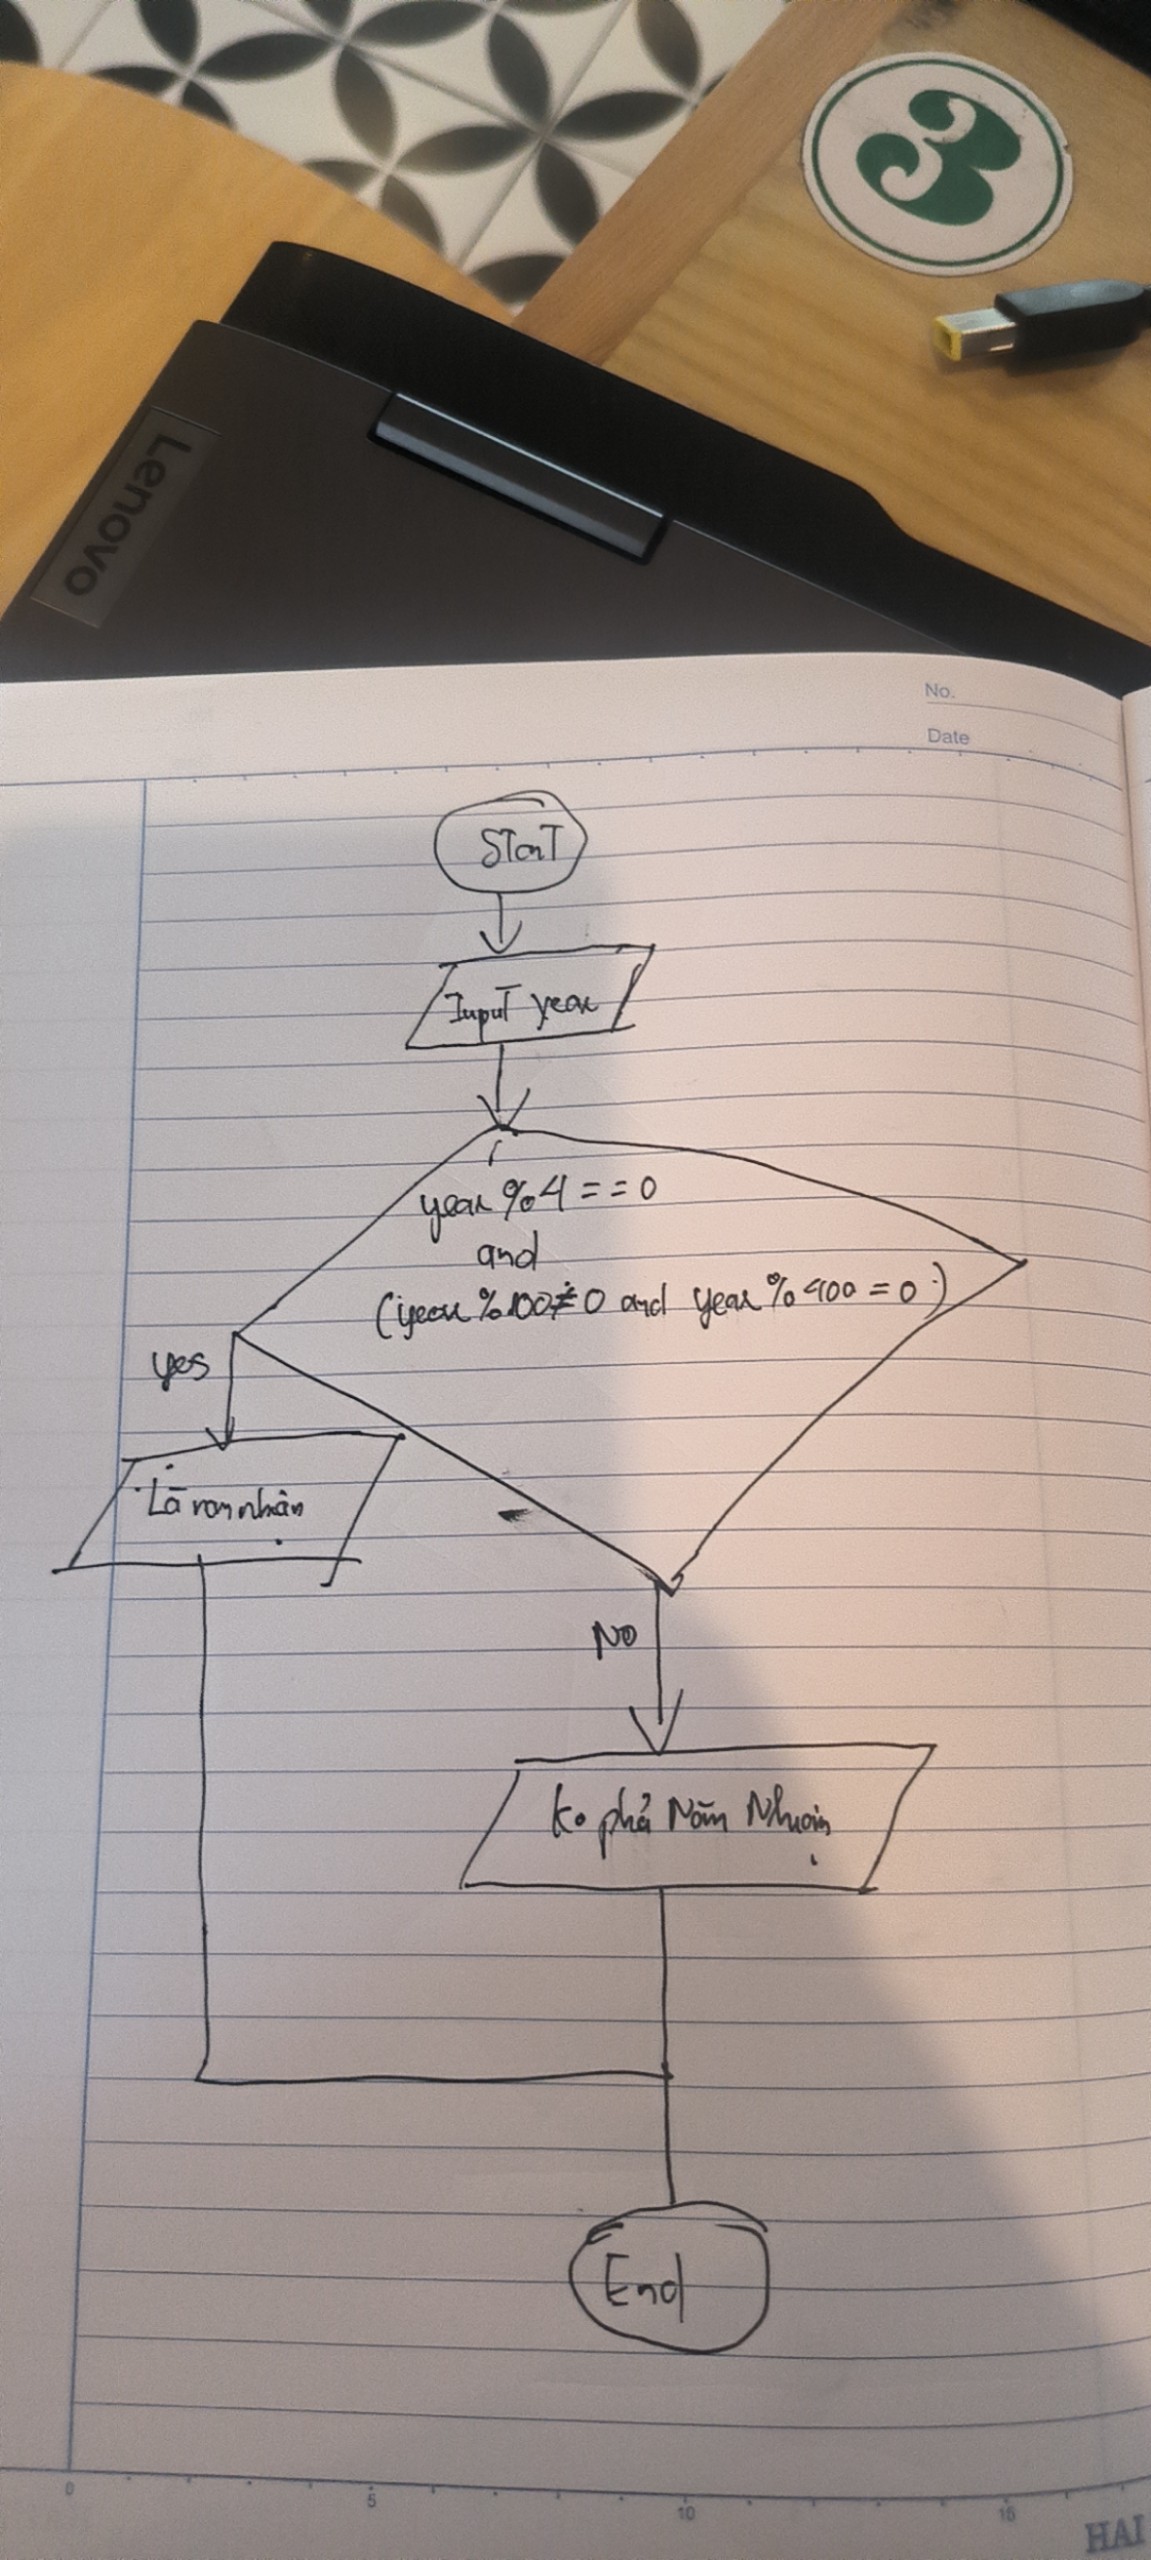 3
Lenovo
No.
Date
START
Input year
year % 4 == 0
and
(year % 100 ≠ 0 and year % 400 = 0)
yes
Là năm nhuận
NO
Ko phả Năm Nhuận
End
0 5 10 15
HAI